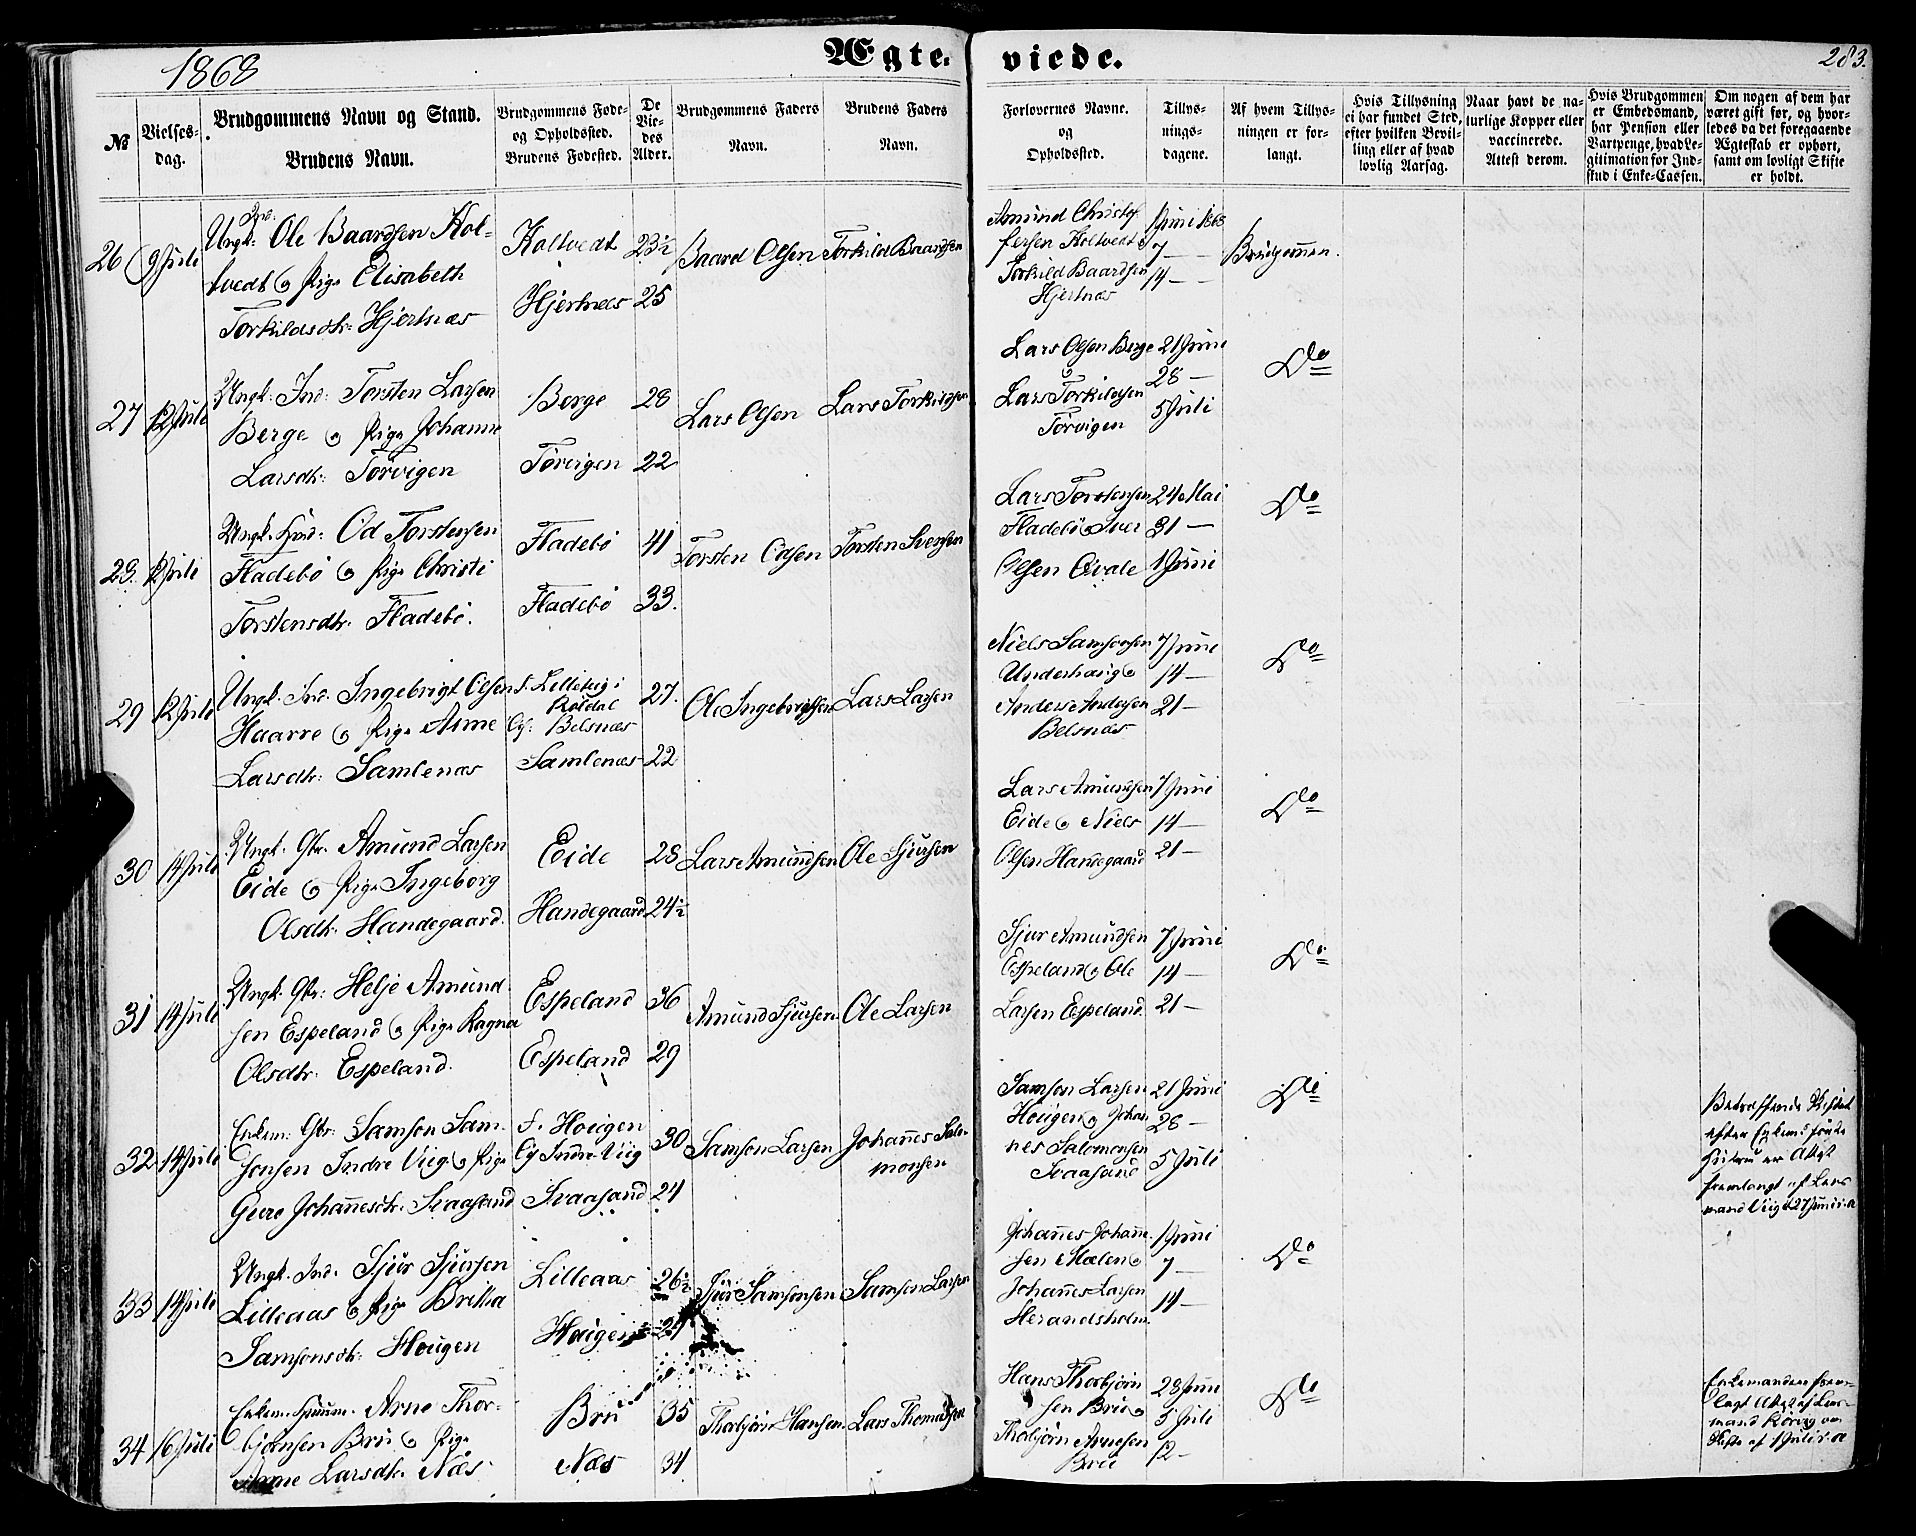 1868
Ægte.
viede.
283.
№
Vielses-
dag.
Brudgommens Navn og Stand.
Brudens Navn.
Brudgommens Føde-
og Opholdssted.
Brudens Fødested.
De
Vie-
des
Alder.
Brudgommens Faders
Navn.
Brudens Faders
Navn.
Forlovernes Navne.
og
Opholdssted.
Tillys-
nings-
dagene.
Af hvem Tillys-
ningen er for-
langt.
Hvis Tillysning
ei har fundet Sted,
efter hvilken Bevil-
ling eller af hvad
lovlig Aarsag.
Naar havt de na-
turlige Kopper eller
vaccinerede.
Attest derom.
Hvis Brudgommen
er Embedsmand,
har Pension eller
Vartpenge, hvad Le-
gitimation for Ind-
skud i Enke-Cassen.
Om nogen af dem har
været gift før, og hvor-
ledes da det foregaaende
Ægteskab er ophørt,
samt om lovligt Skifte
er holdt.
26 9 Juli
Ungk: Ind. Ole Baardsen Kol-
tvedt og Pige Elisabeth
Torkildsdtr: Hjertnæs
Koltvedt 23½
Hjertnæs 25
Baard Olsen
Torkild Baardsen
Amund Christof
fersen Koltvedt &
Torkild Baardsen
Hjertnæs
1 Juni 1868
7 —
14 —
Brudgommen.
27 12 Juli
Ungk: Ind: Torsten Larsen
Berge og Pige Johanne
Larsdtr: Tørvigen
Berge 28
Tørvigen 22
Lars Olsen
Lars Torkildsen
Lars Olsen Berge
&
Lars Torkildsen
Tørvigen
21 Juni
28 —
5 Juli
Do
28. 12 Juli
Ungk. Hmd: Od Torstensen
Fladebø og Pige Christi
Torstensdtr. Fladebø.
Fladebø 41
Fladebø 33.
Torsten Odsen
Torsten Svensen
Lars Torstensen
Fladebø & Iver
Olsen Qvale
24 Mai
31 —
1 Juni
Do
29 12 Juli
Ungk. Ind. Ingebrigt Olsen
Haarre og Pige Anne
Larsdtr: Samlenæs
F. Lilleteig i
Røldal
Op: Belsnæs
27.
Samlenæs 22
Ole Ingebrigtsen
Lars Larsen
Niels Samsonsen
Underhaug &
Anders Andersen
Belsnæs
7 Juni
14 —
21 —
Do
30 14 Juli
Ungk. Gbr. Amund Larsen
Eide og Pige Ingeborg
Olsdtr. Handegaard.
Eide 28
Handegaard 24½
Lars Amundsen
Ole Sjursen
Lars Amundsen
Eide & Niels
Olsen Handegaard
7 Juni
14 —
21 —
Do
31 14 Juli
Ungk. Gbr: Helje Amund-
sen Espeland og Pige Ragna
Olsdtr: Espeland.
Espeland 36
Espeland 29
Amund Sjursen
Ole Larsen
Sjur Amundsen
Espeland & Ole
Larsen Espeland.
7 Juni
14 —
21 —
Do
32 14 Juli
Enkem: Gbr: Samson Sam-
sonsen Indre Viig og Pige
Guro Johannesdtr. Svaasand
F. Hougen
Op Indre Viig 30
Svaasand 24
Samson Larsen
Johannes Salo-
monsen
Samson Larsen
Hougen & Johan-
nes Salomonsen
Svaasand
21 Juni
28 —
5 Juli
Do
Betræffende Skiftet
efter Enkem: forste
Hustru er Attest
fremlangt af Lens
mand Viig 27 Juni d. a
33 14 Juli
Ungk. Ind. Sjur Sjursen
Lilleaas og Pige Britha
Samsonsdtr: Hougen
Lilleaas 26½
Hougen 24
Sjur Samsonsen
Samson Larsen
Johannes Johanne
sen Mælen &
Johannes Larsen
Herandsholm.
1 Juni
7 —
14 —
Do
34 16 Juli
Enkem. Huusm. Arne Thor-
bjørnsen Bru og Pige
Anne Larsdtr. Næs
Bru 35
Næs 34
Thorbjørn Hansen
Lars Thomassen
Hans Thorbjørn
sen Bru &
Thorbjørn Arnesen
Bru
28 Juni
5 Juli
12 —
Do
Enkemanden frem-
lagt Attest af Lens-
mand Rørvig om
Skifte af 1 Juli d. a